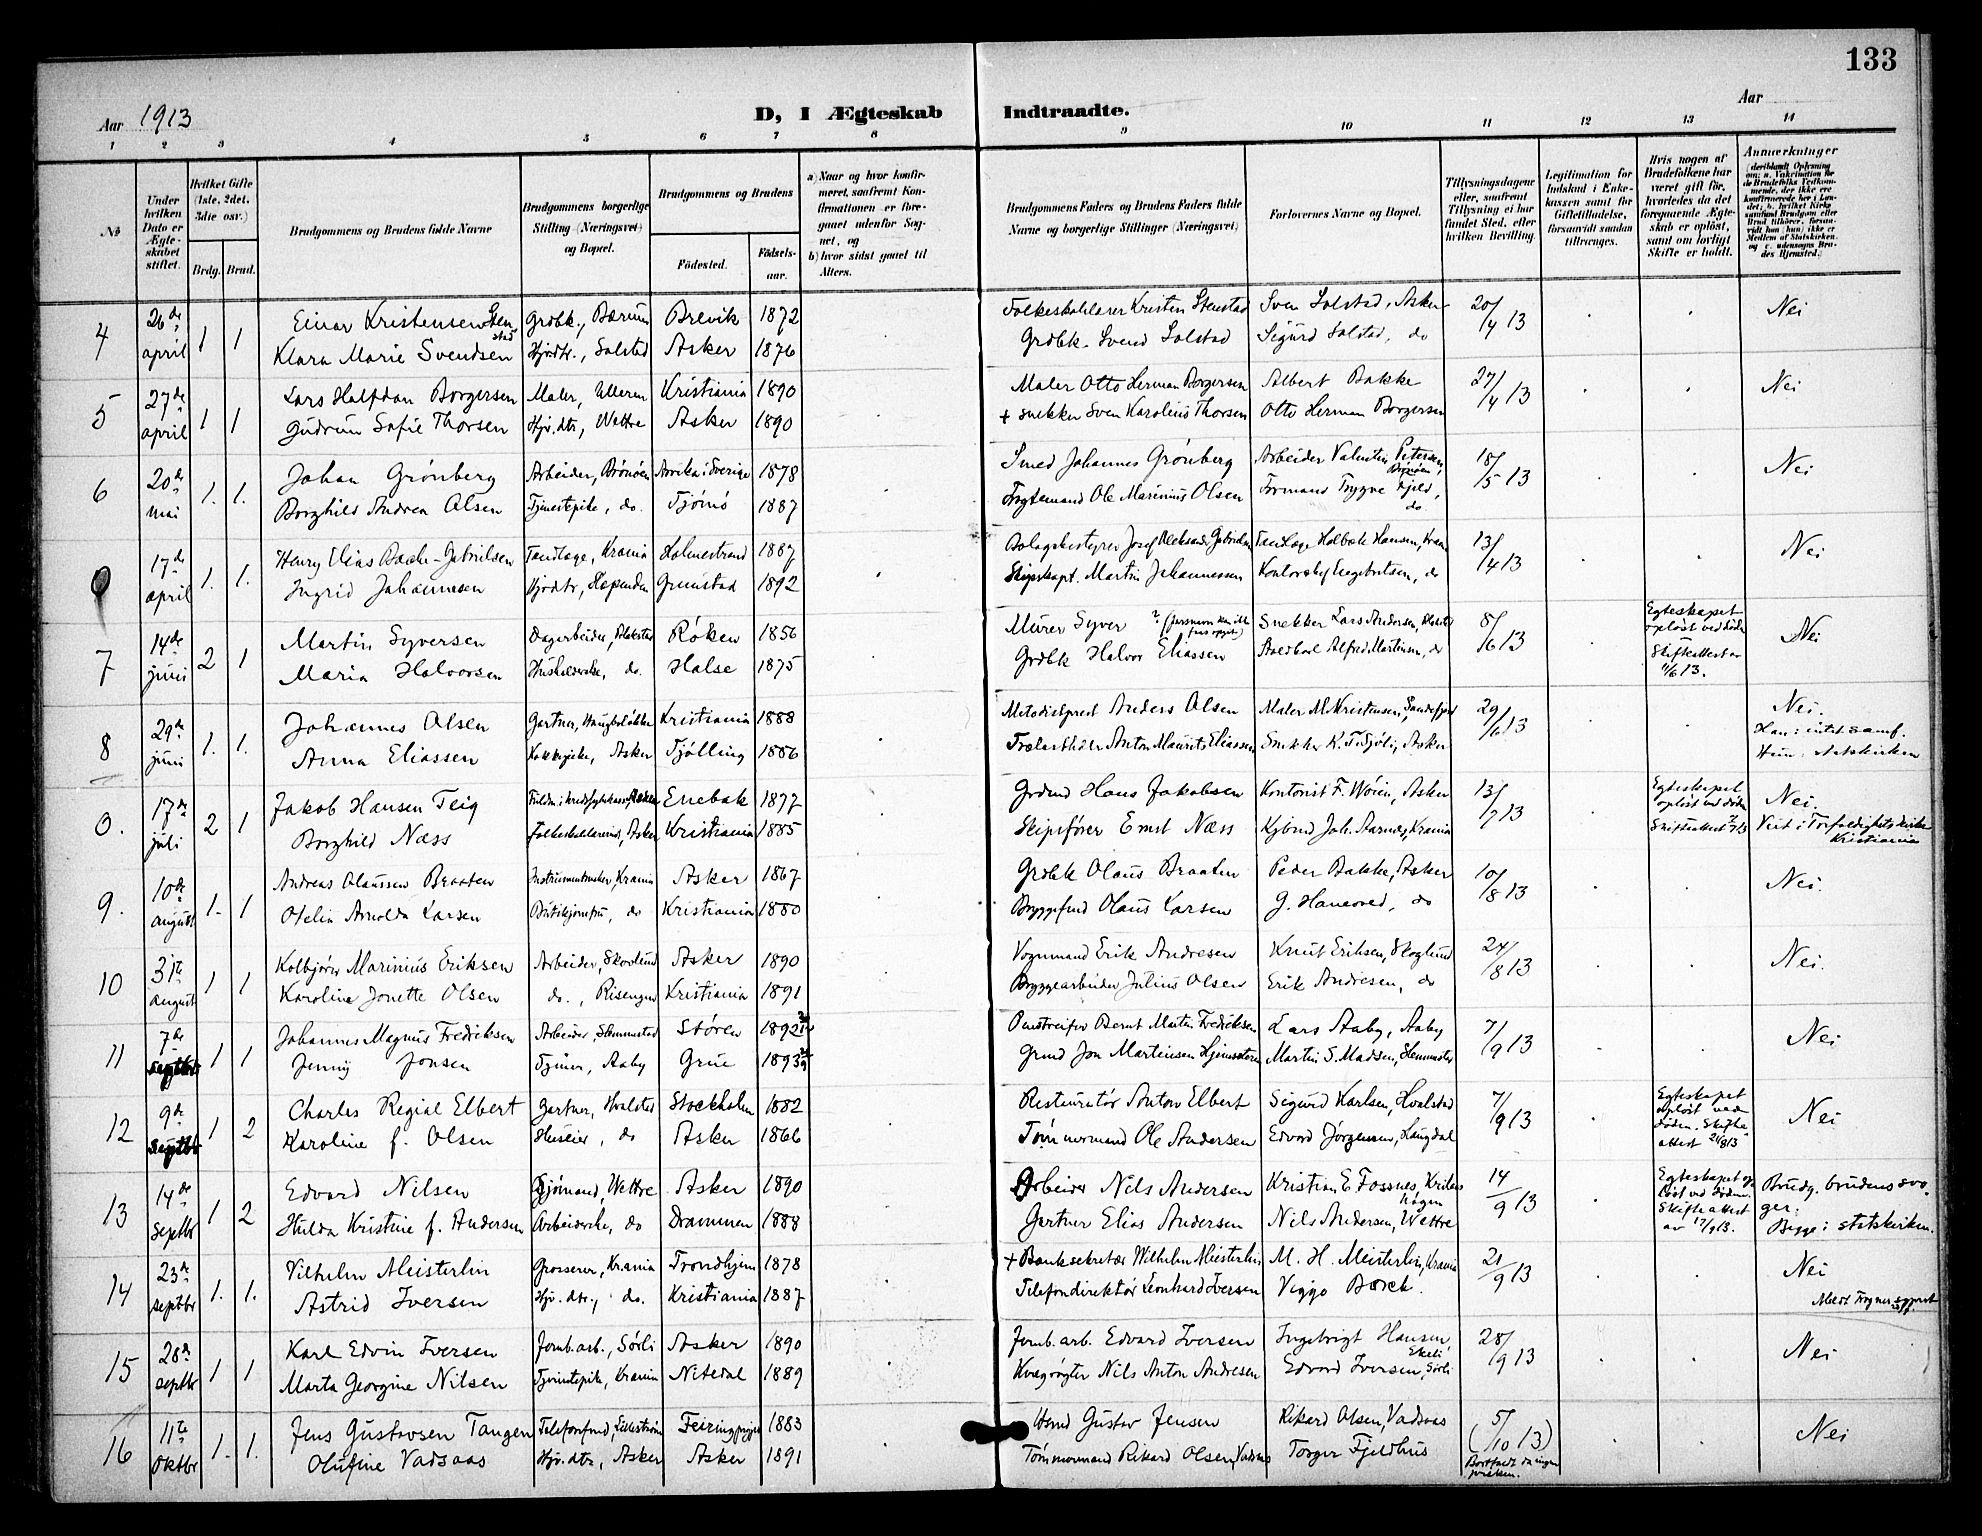 133
Aar 1913
D, I Ægteskab Indtraadte.
Aar
1 2 3 4 5 6 7 8 9 10 11 12 13 14
No
Under hvilken Dato er Ægteskabet stiftet.
Hvilket Gifte (1ste, 2det, 3die osv.)
Brdg. Brud.
Brudgommens og Brudens fulde Navne
Brudgommens borgerlige Stilling (Næringsvei) og Bopæl.
Brudgommens og Brudens
Fødested. Fødselsaar.
a) Naar og hvor konfirmeret, saafremt Konfirmationen er foregaaet udenfor Sognet, og
b) hvor sidst gaaet til Alters.
Brudgommens Faders og Brudens Faders fulde Navne og borgerlige Stillinger (Næringsvei)
Forlovernes Navne og Bopæl.
Tillysningsdagene eller, saafremt Tillysning ei har fundet Sted, efter hvilken Bevilling.
Legitimation for Indskud i Enkekassen samt for Giftetilladelse, forsaavidt saadan tiltrænges.
Hvis nogen af Brudefolkene har været gift før, hvorledes da det foregaaende Ægteskab er opløst, samt om lovligt Skifte er holdt.
Anmærkninger
4 26de april 1 1 Einar Kristensen Stenstad Grdbk., Bærum Brevik 1872 Folkeskolelærer Kristen Stenstad Sven Solstad, Asker 20/4 13 Nei
Klara Marie Svendsen Hjvdtr., Solstad Asker 1876 Grdbk. Svend Solstad Sigurd Solstad, do
5 27de april 1 1 Lars Halfdan Borgersen Maler, Ullern Kristiania 1890 Maler Otto Herman Borgersen Albert Bakke 27/4 13 Nei
Gudrun Sofie Thorsen Hjv.dtr, Wettre Asker 1890 + snekker Sven Karolius Thorsen Otto Herman Borgersen
6 20de mai 1. 1. Johan Grönberg Arbeider, Brönöen Arvika i Sverige 1878 Smed Johannes Grönberg Arbeider Valentin Petersen, Brönöen, 18/5 13 Nei
Borghild Andrea Olsen Tjenestepike, do. Tjömö 1887 Ole Marinius Olsen Formand Trygve Fjeld, do.
0 17de april 1. 1. Henry Elias Bache-Gabrielsen Tandlæge, Krania Holmestrand 1887 Josef Aleksander Gabrielsen Tandlæge Holbek Hansen, Krania 13/4 13 Nei
Ingrid Johannesen Hjvdtr, Hopenden Grimstad 1892 Skipskapt. Martin Johannessen Kontorchef Engebretsen, do
7 14de juni 2 1 Martin Syversen Dagarbeider, Blakstad Röken 1856 Murer Syver ? Snekker Lars Andersen, Blakstad 8/6 13 Egteskapet opløst ved døden Skifteattest av 11/6 13. Nei
Maria Halvorsen Husholderske, do. Halse 1875 Grdbk Halvor Eliassen Alfred Martinsen, do
8 29de juni 1. 1. Johannes Olsen Gartner, Kristiania 1888 Metodistprest Anders Olsen Maler M. Kristensen, Sandefjord 29/6 13 Nei.
Anna Eliassen Kokkepike, Asker Tjölling 1886 Anton Maurits Eliassen Snekker K. Asker Han: intet samf. Hun: statskirken
0. 17de juli 2 1 Jakob Hansen Teig Enebak 1877 Grdmd Hans Jakobsen Kontorist F. Wöien, Asker 13/7 13 Egteskapet opløst ved døden Skifteattest Nei.
Borghild Næss Folkeskollærerinde, Asker Kristiania 1885 Skipsfører Ernst Næss Joh. Aarnes, Krania Viet i Trefoldighetskirken Kristiania
9. 10de august 1. 1 Andreas Olaussen Braaten Instrumentmaker, Krania Asker 1867 Grdbk Olaus Braaten Peder Bakke, Asker 10/8 13 Nei.
Ofelia Arnolda Larsen Butikjomfru, do Kristiania 1880 Olaus Larsen G. Hanevold, do
10 31te august 1 1 Kolbjörn Marinius Eriksen Arbeider, Skovlund Asker 1890 Vognmand Erik Andresen Knut Eriksen, Skoglund 24/8 13 Nei.
Karoline Jonette Olsen do., Risenga Kristiania 1891 Bryggearbeider Julius Olsen Erik Andresen, do
11 7de septbr 1 1 Johannes Magnus Fredriksen Arbeider, Slemmestad Stören 1892 Bernt Martin Fredriksen Lars Aaby, Aaby 7/9 13 Nei
Jenny Jonsen Tjener, Aaby Grue 1893 Grmd Jon Martinsen Martin S. Madsen, Slemmestad
12 9de septbr 1 2 Charles Regial Elbert Gartner, Hvalstad Stockholm 1882 Restauratör Anton Elbert Sigurd Karlsen, Hvalstad 7/9 13 Egteskapet opløst ved døden. Skifteattest 21/8 13 Nei
Karoline f. Olsen Huseier, do Asker 1866 Tømmermand Ole Andersen Edvard Jørgensen, Langdal
13 14de septbr 1 2 Edvard Nilsen Sjömand, Wettre Asker 1890 Arbeider Nils Andersen Kristian E Fossnes, 14/9 13 Egteskapet opløst ved døden. Skifteattest av 17/9 13. Brudg. brudens svoger.
Hulda Kristine f. Andersen Arbeiderske, do Drammen 1888 Gartner Elias Andersen Nils Andersen, Wettre Begge i statskirken.
14 23de septbr 1. 1. Vilhelm Meisterlin Grosserer, Krania Trondhjem 1878 + Banksekretær Wilhelm Meisterlin M. H. Meisterlin, Krania 21/9 13 Nei
Astrid Iversen Hjv. dtr., do. Kristiania 1887 Telefondirektör Leonhard Iversen Viggo Borch.
15 28de septbr 1 1 Karl Edvin Iversen Jernb. arb., Sörli Asker 1890 Jernb. arb. Edvard Iversen Ingebrigt Hansen, Ekeli 28/9 13 Nei
Marta Georgine Nilsen Tjenestepike, Krania Nitedal 1889 Kvægrøgter Nils Anton Andresen Edvard Iversen, Sörli
16 11te oktbr 1. 1. Jens Gustavsen Tangen Lilleström Feiring 1883 Gustav Jensen Rikard Olsen, Vadsaas (5/10 13) Nei
Olufine Vadsaas Hjv. dtr, Asker Asker 1891 Tømmermand Rikard Olsen, Vadsaas Torger Fjeldhus